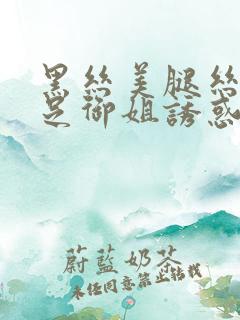 黑絲美腿絲
足御姐誘惑
蔚藍奶茶
未经同意禁止转载